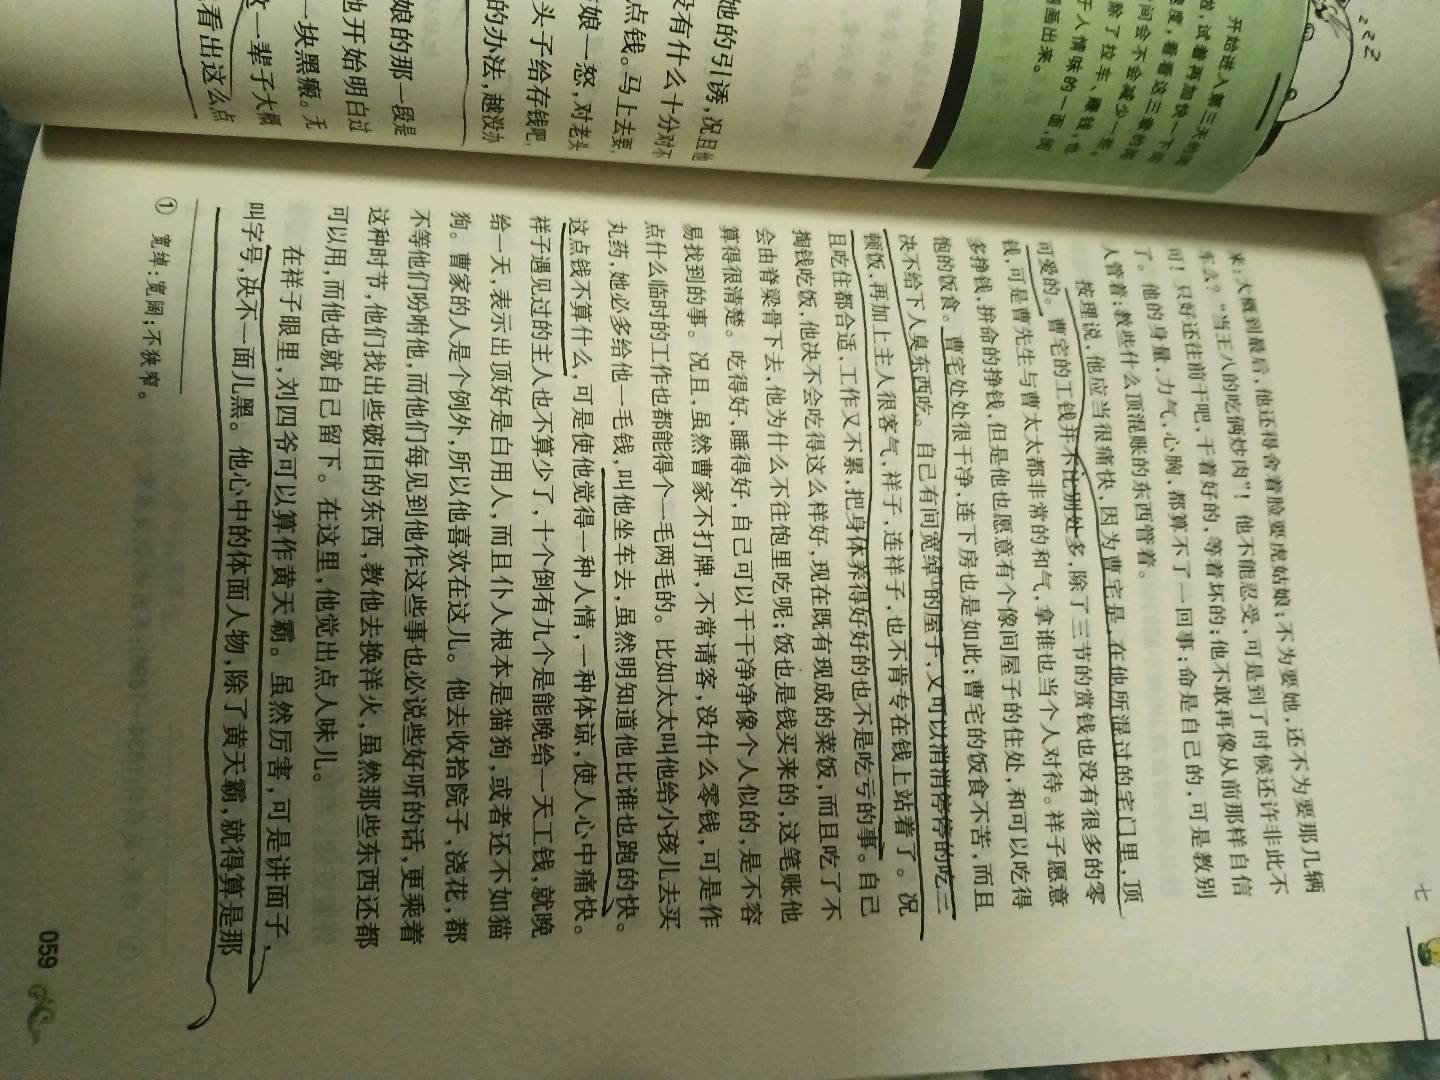 她的引诱，况且他
没有什么十分对不
点钱。马上去要，
娘一怒，对老头
头子给存钱吧，
的办法，越没办
娘的那一段是
也开始明白过
一块黑瘢。无
这一辈子大概
看出这么点
开始进入第三天的阅
做，试着再加快一下阅
速度，看看这三章的阅
间会不会减少一些。
除了拉车、赚钱，也
于人情味的一面，阅
画出来。
zzz
七
来：大概到最后，他还得舍着脸要虎姑娘；不为要她，还不为要那几辆
车么？“当王八的吃俩炒肉”！他不能忍受，可是到了时候还许非此不
可！只好还往前干吧，干着好的，等着坏的；他不敢再像从前那样自信
了。他的身量，力气，心胸，都算不了一回事；命是自己的，可是教别
人管着；教些什么顶混账的东西管着。
按理说，他应当很痛快，因为曹宅是，在他所混过的宅门里，顶
可爱的。曹宅的工钱并不比别处多，除了三节的赏钱也没有很多的零
钱，可是曹先生与曹太太都非常的和气，拿谁也当个人对待。祥子愿意
多挣钱，拚命的挣钱，但是他也愿意有个像间屋子的住处，和可以吃得
饱的饭食。曹宅处处很干净，连下房也是如此；曹宅的饭食不苦，而且
决不给下人臭东西吃。自己有间宽绰①的屋子，又可以消消停停的吃三
顿饭，再加上主人很客气，祥子，连祥子，也不肯专在钱上站着了。况
且吃住都合适，工作又不累，把身体养得好好的也不是吃亏的事。自己
掏钱吃饭，他决不会吃得这么样好，现在既有现成的菜饭，而且吃了不
会由脊梁骨下去，他为什么不往饱里吃呢；饭也是钱买来的，这笔账他
算得很清楚。吃得好，睡得好，自己可以干干净净像个人似的，是不容
易找到的事。况且，虽然曹家不打牌，不常请客，没什么零钱，可是作
点什么临时的工作也都能得个一毛两毛的。比如太太叫他给小孩儿去买
丸药，她必多给他一毛钱，叫他坐车去，虽然明知道他比谁也跑的快。
这点钱不算什么，可是使他觉得一种人情，一种体谅，使人心中痛快。
祥子遇见过的主人也不算少了，十个倒有九个是能晚给一天工钱，就晚
给一天，表示出顶好是白用人，而且仆人根本是猫狗，或者还不如猫
狗。曹家的人是个例外，所以他喜欢在这儿。他去收拾院子，浇花，都
不等他们吩咐他，而他们每见到他作这些事也必说些好听的话，更乘着
这种时节，他们找出些破旧的东西，教他去换洋火，虽然那些东西还都
可以用，而他也就自己留下。在这里，他觉出点人味儿。
在祥子眼里，刘四爷可以算作黄天霸。虽然厉害，可是讲面子，
叫字号，决不一面儿黑。他心中的体面人物，除了黄天霸，就得算是那
① 宽绰：宽阔；不狭窄。
059